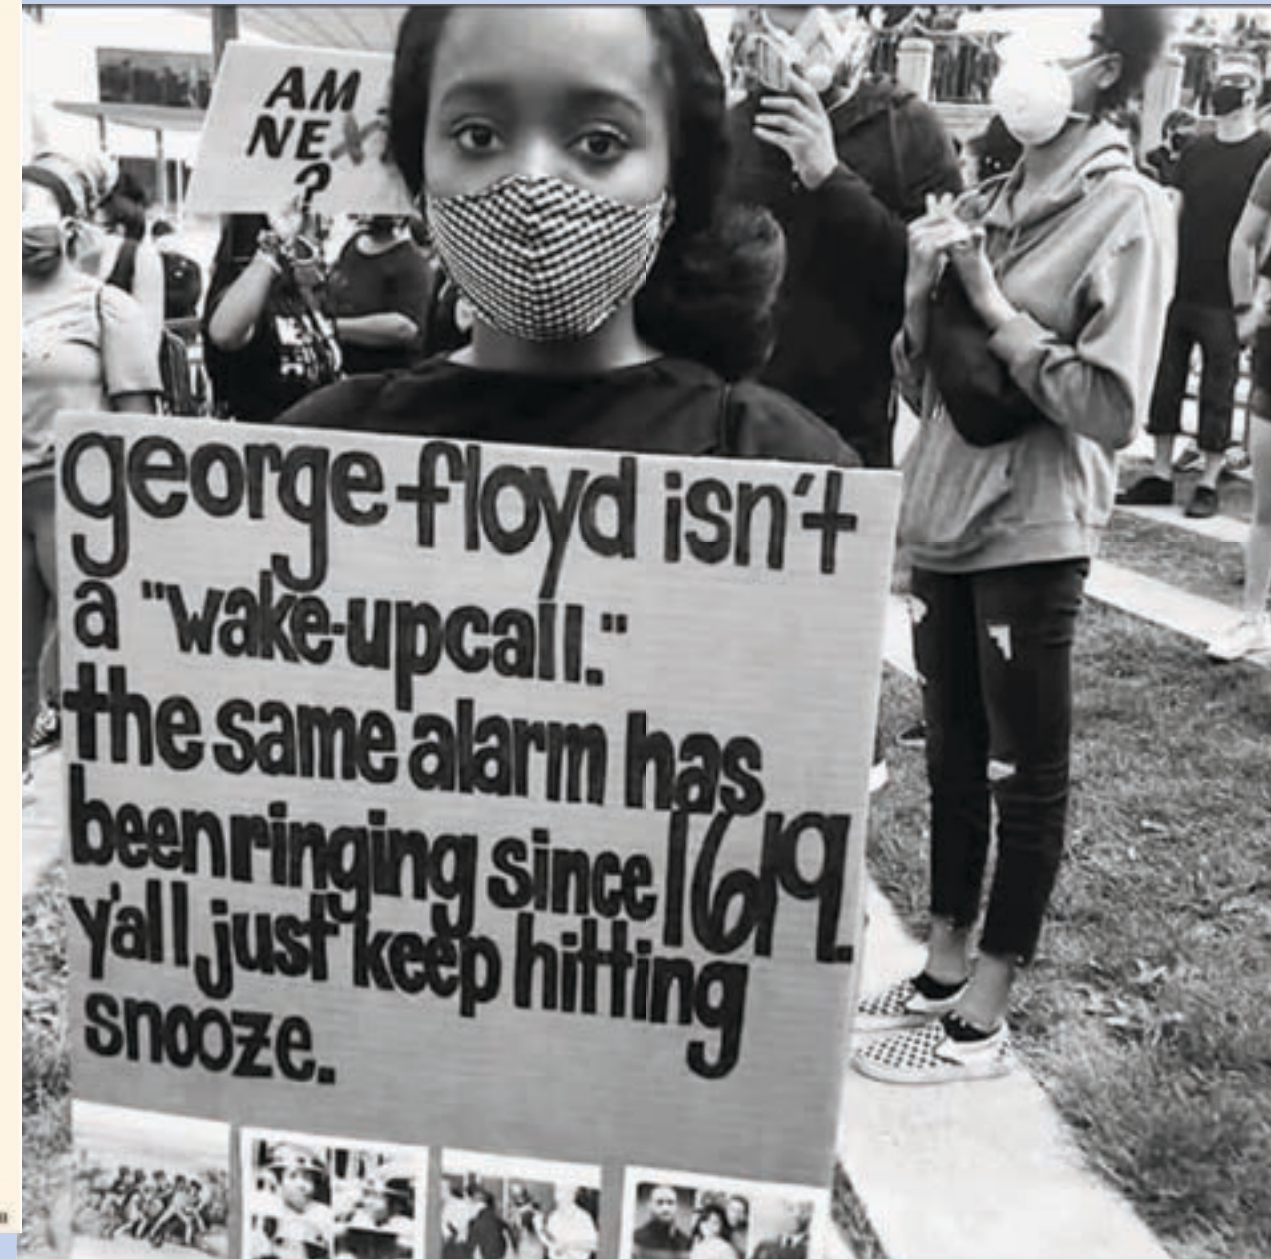 AM
NEXT
?
george floyd isn't
a "wake-up call."
the same alarm has
been ringing since 1619.
y'all just keep hitting
snooze.